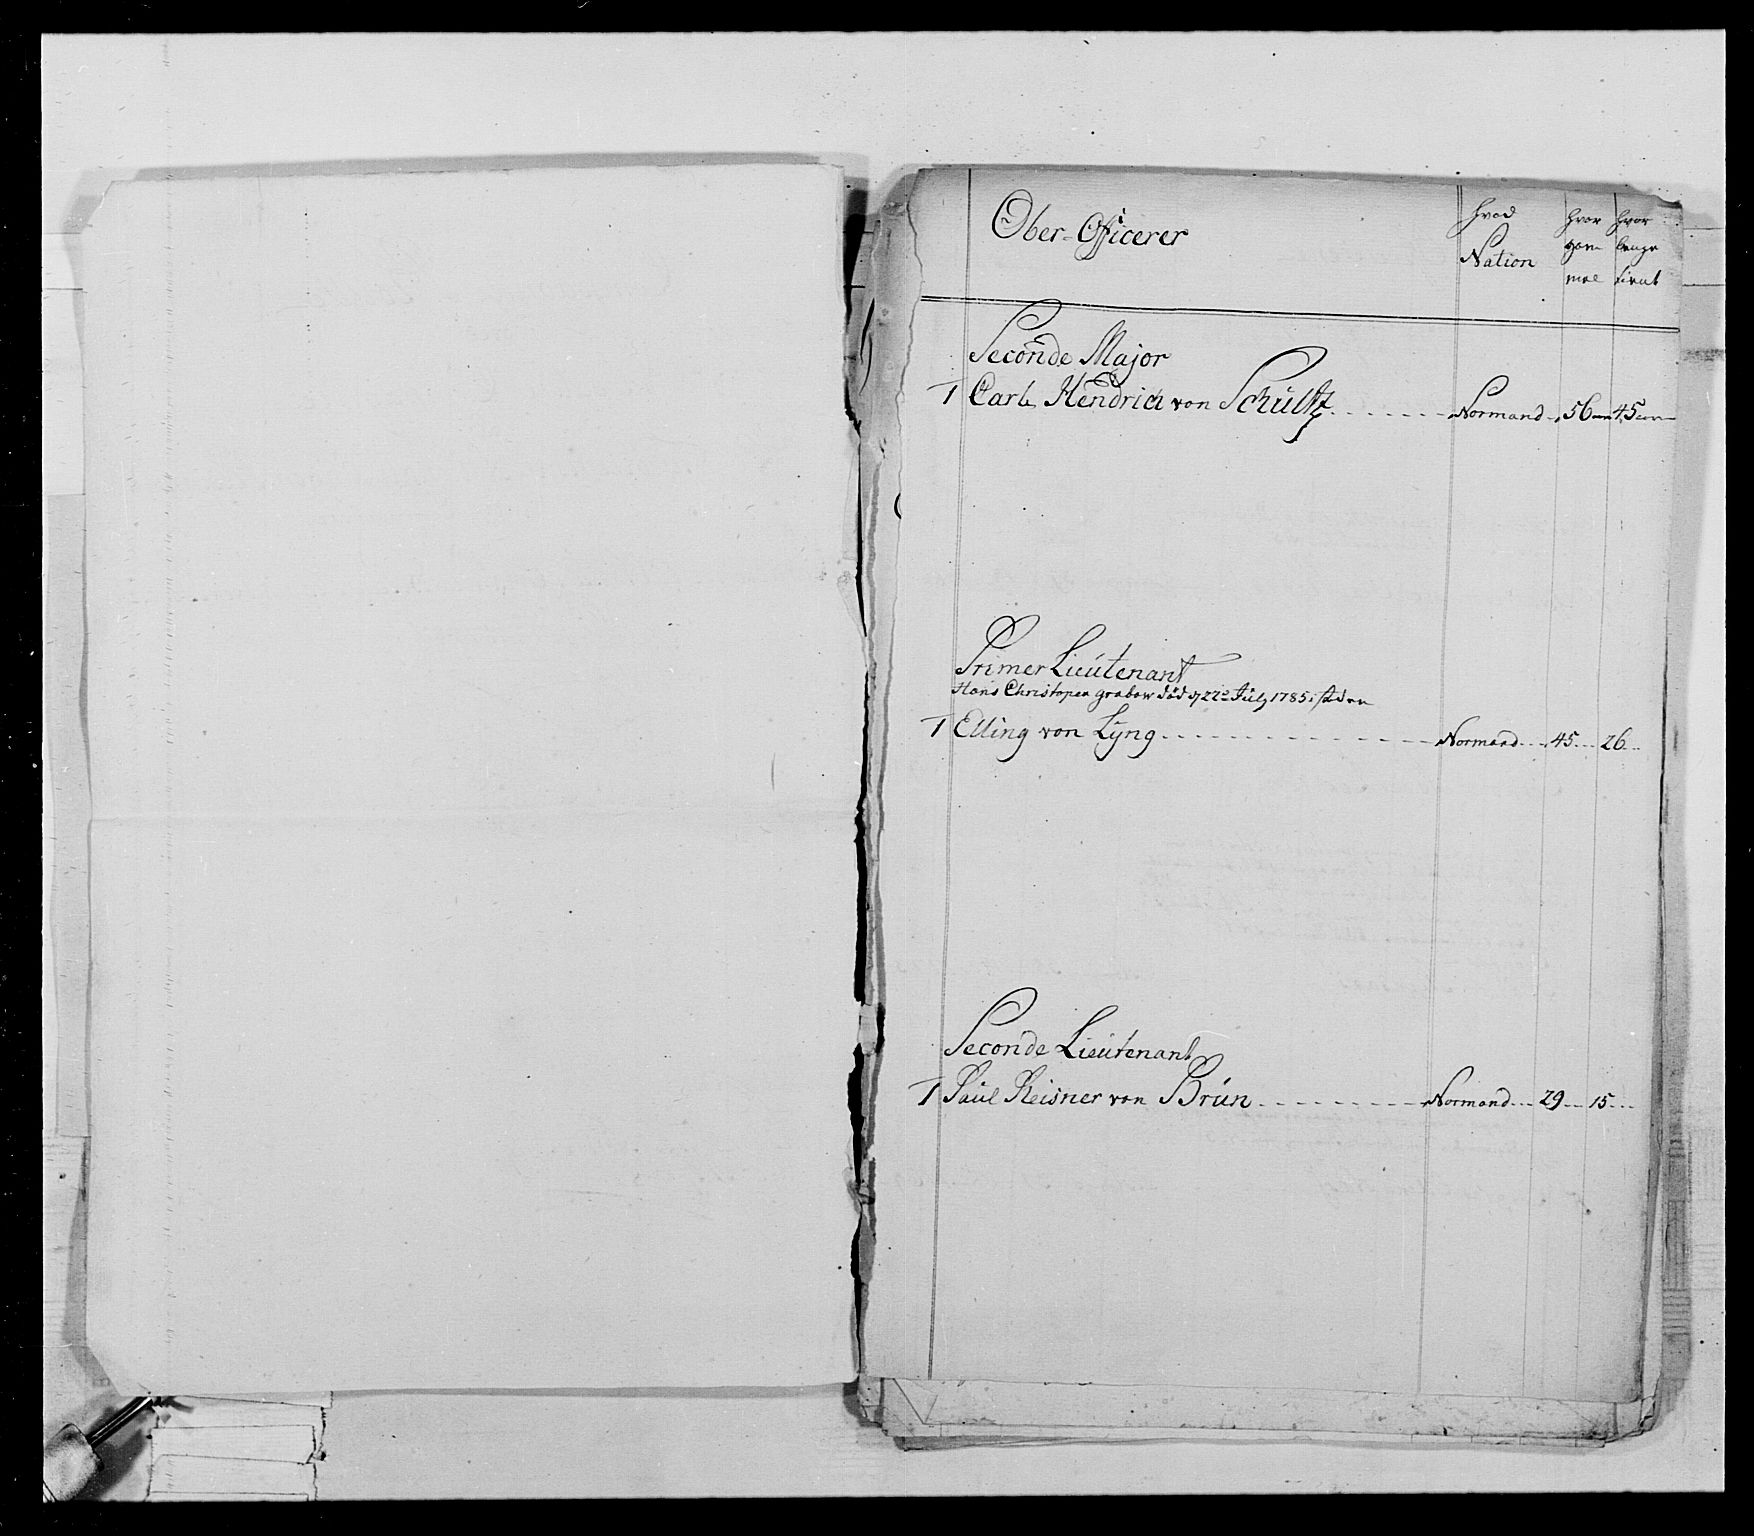 Ober-Officerer
hvad Nation
hvor gam mel
hvor lenge tient
Seconde Major
1 Carl Hendrich von Schultz Normand 56 45
Primer Lieutenant
Hans Christopen grabow död d 22de July 1785
1 Elling von Lyng Normand 45 26
Seconde Lieutenant
1 Paul Reisner von Brun Normand 29 15